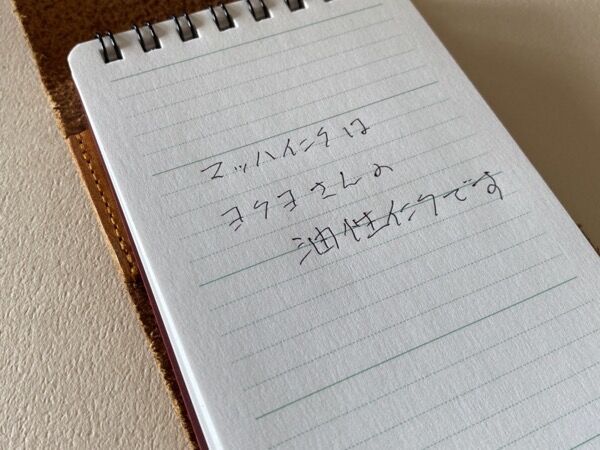 マッハインクは
ヨクヨさんの
油性インクです